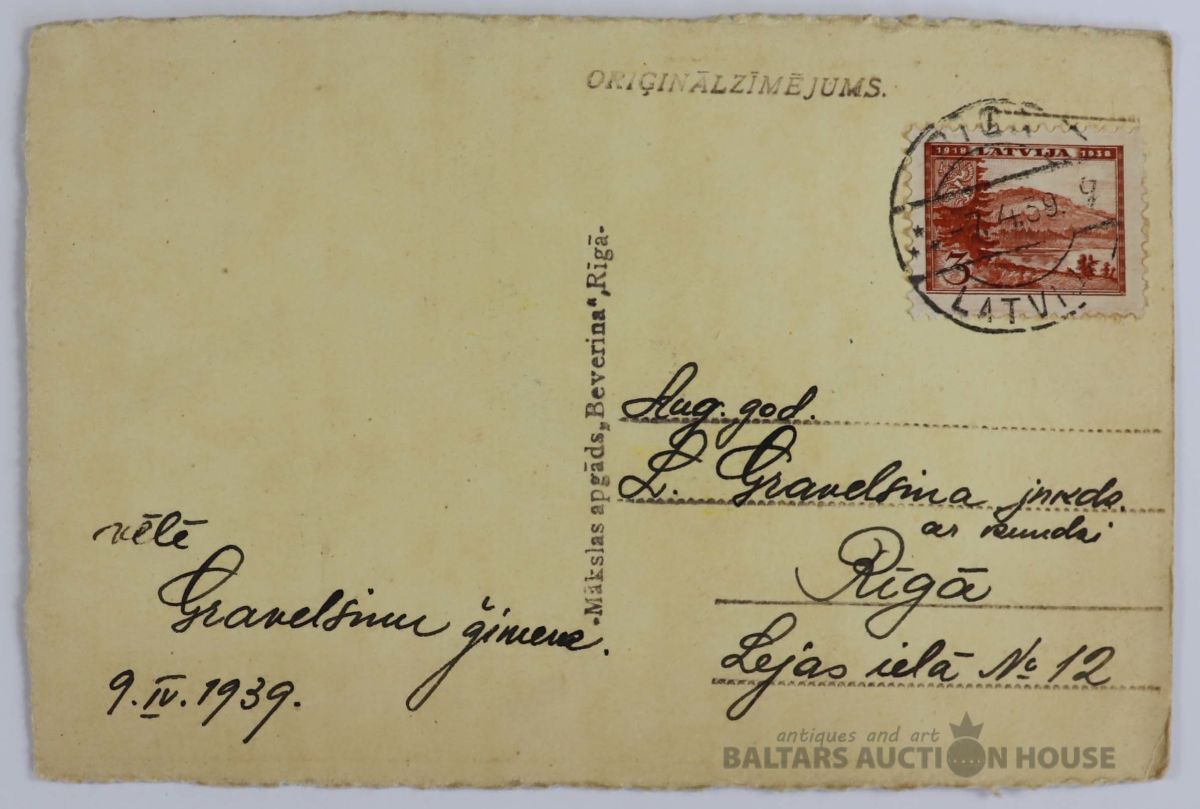 ORIĢINĀLZĪMĒJUMS.
1918 LATVIJA 1938
3
4.39. 9
LATVIJ
-Mākslas apgāds„Beverina“,Rīgā-
Aug. god.
L. Gravelsiņa jnkds.
ar kundzi
Rīgā
Lejas ielā № 12
vēlē
Gravelsiņu ģimene.
9.IV.1939.
antiques and art
BALTARS AUCTION HOUSE